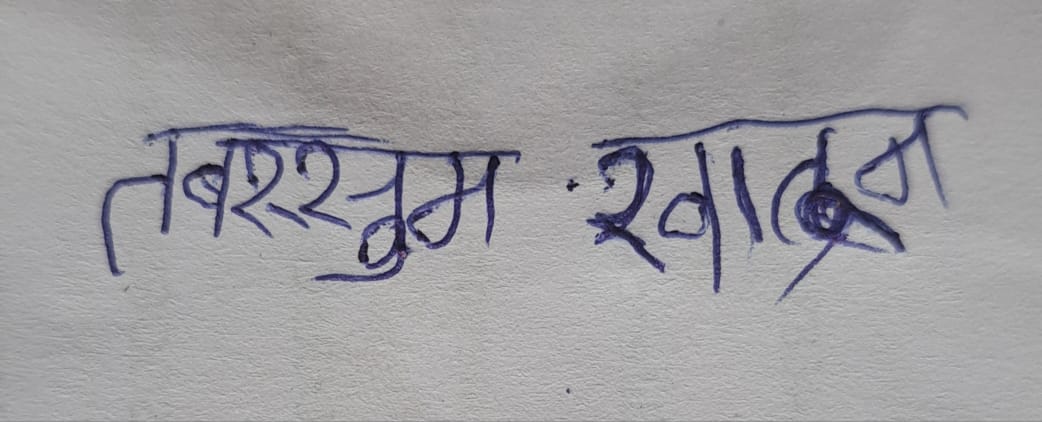 तबस्सुम खातून